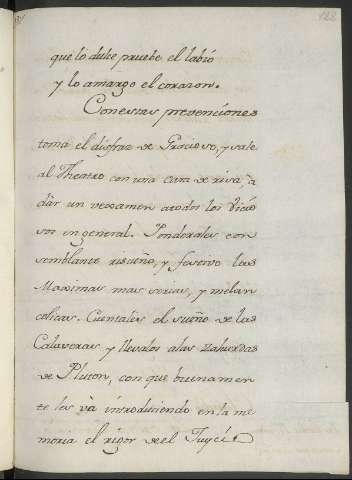 122
que lo dulce pruebe el labio
y lo amargo el corazon.
Con estas prevenciones
toma el disfraz de Gracioso, y sale
al Theatro con una cara de risa à
dàr un vexamen atodos los Vicio
sos en general. Pondoralès con
semblante risueño, y festivo las
Maximas mas serias, y melan
colicas. Cuentales el sueño de las
Calaveras y llevalos alas zahurdas
de Pluton, con que buenamen
te los và introduciendo en la me
moria el rigor de el Juyci